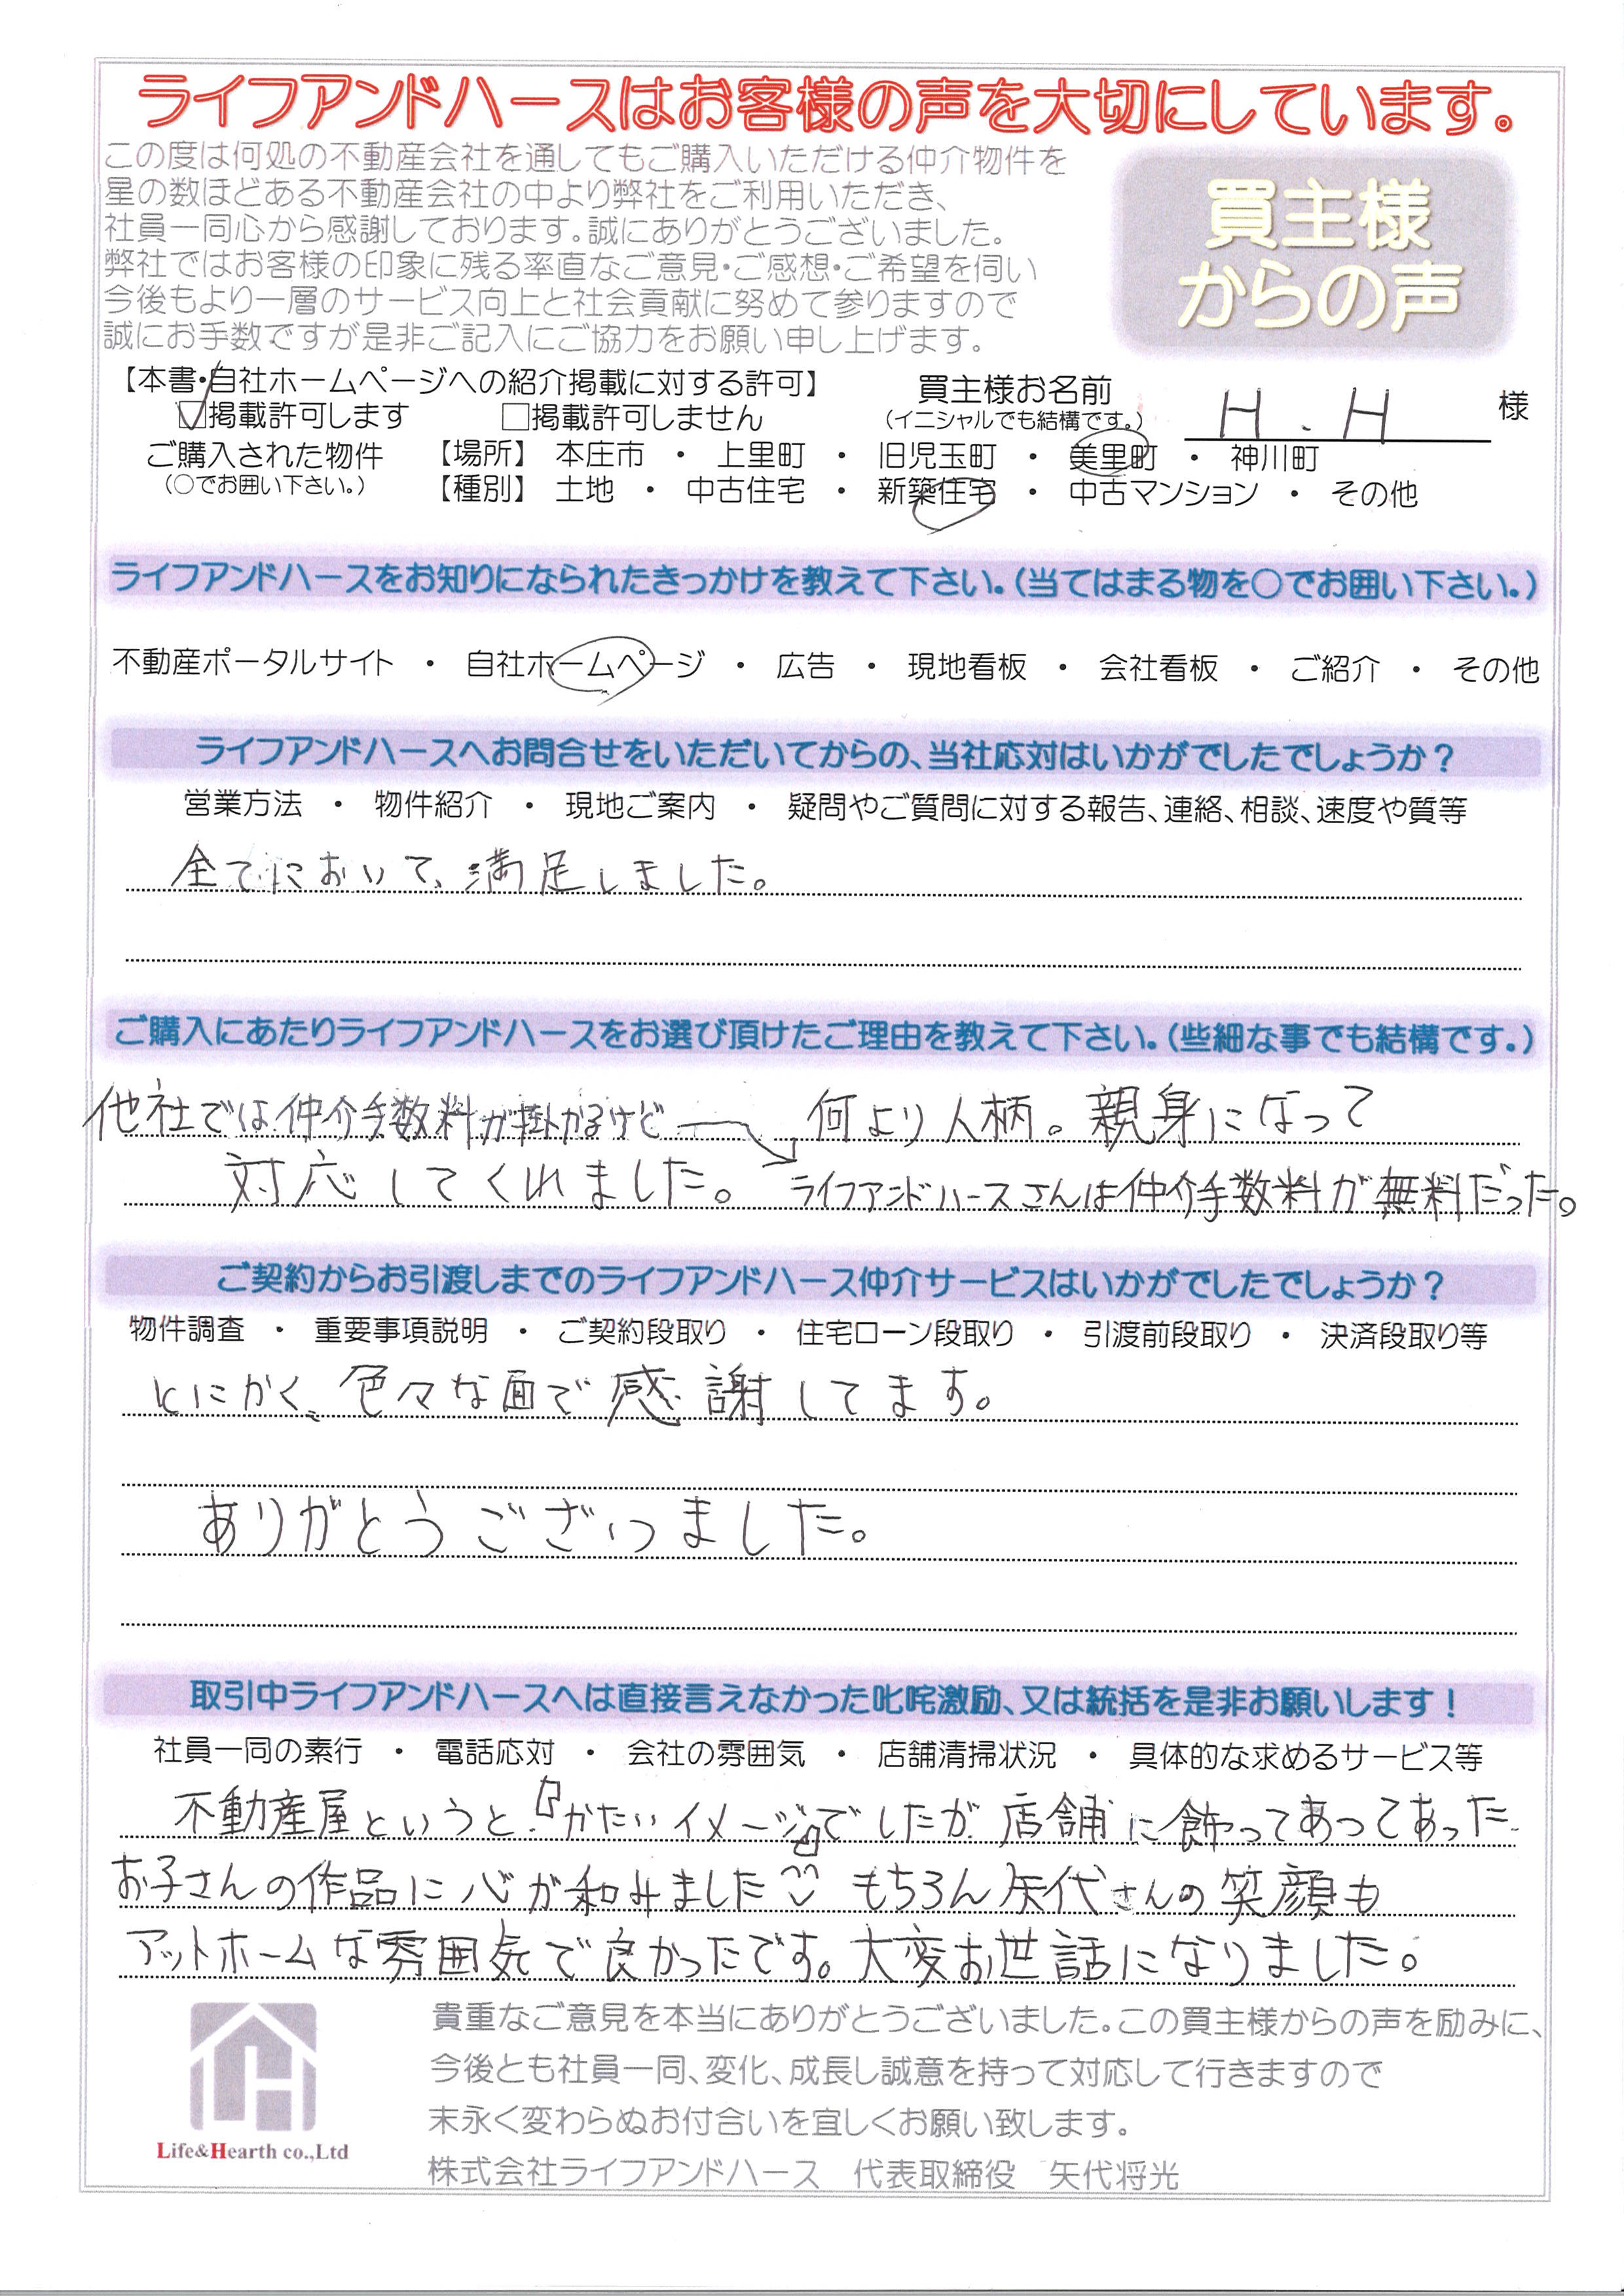 ライフアンドハースはお客様の声を大切にしています。
この度は何処の不動産会社を通してもご購入いただける仲介物件を
星の数ほどある不動産会社の中より弊社をご利用いただき、
社員一同心から感謝しております。誠にありがとうございました。
弊社ではお客様の印象に残る率直なご意見・ご感想・ご希望を伺い
今後もより一層のサービス向上と社会貢献に努めて参りますので
誠にお手数ですが是非ご記入にご協力をお願い申し上げます。
買主様
からの声
【本書・自社ホームページへの紹介掲載に対する許可】
☑掲載許可します □掲載許可しません
買主様お名前
(イニシャルでも結構です。)
H . H 様
ご購入された物件 【場所】 本庄市 ・ 上里町 ・ 旧児玉町 ・ 美里町 ・ 神川町
(○でお囲い下さい。) 【種別】 土地 ・ 中古住宅 ・ 新築住宅 ・ 中古マンション ・ その他
ライフアンドハースをお知りになられたきっかけを教えて下さい。(当てはまる物を○でお囲い下さい。)
不動産ポータルサイト ・ 自社ホームページ ・ 広告 ・ 現地看板 ・ 会社看板 ・ ご紹介 ・ その他
ライフアンドハースへお問合せをいただいてからの、当社応対はいかがでしたでしょうか?
営業方法 ・ 物件紹介 ・ 現地ご案内 ・ 疑問やご質問に対する報告、連絡、相談、速度や質等
全てにおいて、満足しました。
ご購入にあたりライフアンドハースをお選び頂けたご理由を教えて下さい。(些細な事でも結構です。)
他社では仲介手数料が掛かるけど 何より人柄。親身になって
対応してくれました。 ライフアンドハースさんは仲介手数料が無料だった。
ご契約からお引渡しまでのライフアンドハース仲介サービスはいかがでしたでしょうか?
物件調査 ・ 重要事項説明 ・ ご契約段取り ・ 住宅ローン段取り ・ 引渡前段取り ・ 決済段取り等
とにかく、色々な面で感謝してます。
ありがとうございました。
取引中ライフアンドハースへは直接言えなかった叱咤激励、又は統括を是非お願いします!
社員一同の素行 ・ 電話応対 ・ 会社の雰囲気 ・ 店舗清掃状況 ・ 具体的な求めるサービス等
不動産屋というと『かたいイメージ』でしたが店舗に飾ってあってあった
お子さんの作品に心が和みました もちろん矢代さんの笑顔も
アットホームな雰囲気で良かったです。大変お世話になりました。
貴重なご意見を本当にありがとうございました。この買主様からの声を励みに、
今後とも社員一同、変化、成長し誠意を持って対応して行きますので
末永く変わらぬお付合いを宜しくお願い致します。
Life&Hearth co.,Ltd
株式会社ライフアンドハース 代表取締役 矢代将光